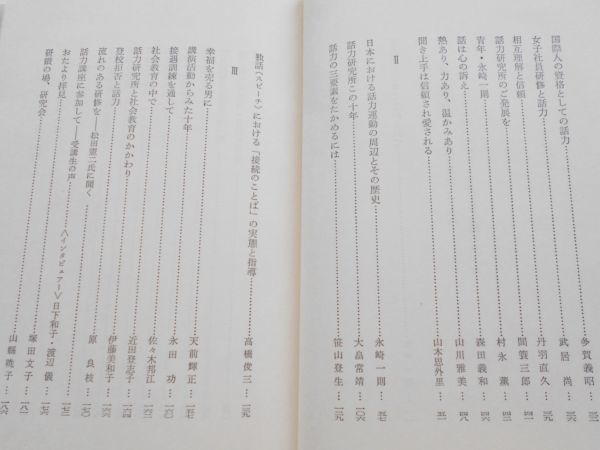 国際人の資格としての話力……多賀義昭…三
女子社員研修と話力……武居尚…三
相互理解と信頼……丹羽直久…三九
話力研究所のご発展を……間簔三郎…四一
青年・永崎一則……村永薫…四三
話は心の訴え……森田義和…四六
熱あり、力あり、温かみあり……山川雅美…四八
聞き上手は信頼され愛される……山木思外里…五一
II
日本における話力運動の周辺とその歴史……永崎一則…五七
話力研究所この十年……大畠常靖…一〇六
話力の三要素をたかめるには……笹山登生…一三九
独話(スピーチ)における「接続のことば」の実態と指導……高橋俊三…一三九
III
幸福を売る男に……天前輝正…一五七
講演活動からみた十年……永田功…一六〇
接遇訓練を通して……佐々木邦江…一六二
社会教育の中で……近田登志子…一六四
話力研究所と社会教育のかかわり……伊藤美和子…一六六
登校拒否と話力……原良枝…一七〇
流れのある研修を——松田憲二氏に聞く……〈インタビュアー〉日下和子・渡辺儀…一七二
話力講座に参加して——受講生の声……
おたより拝見……塚田文子…一七六
研鑽の場、研究会……山縣暁子…一八六